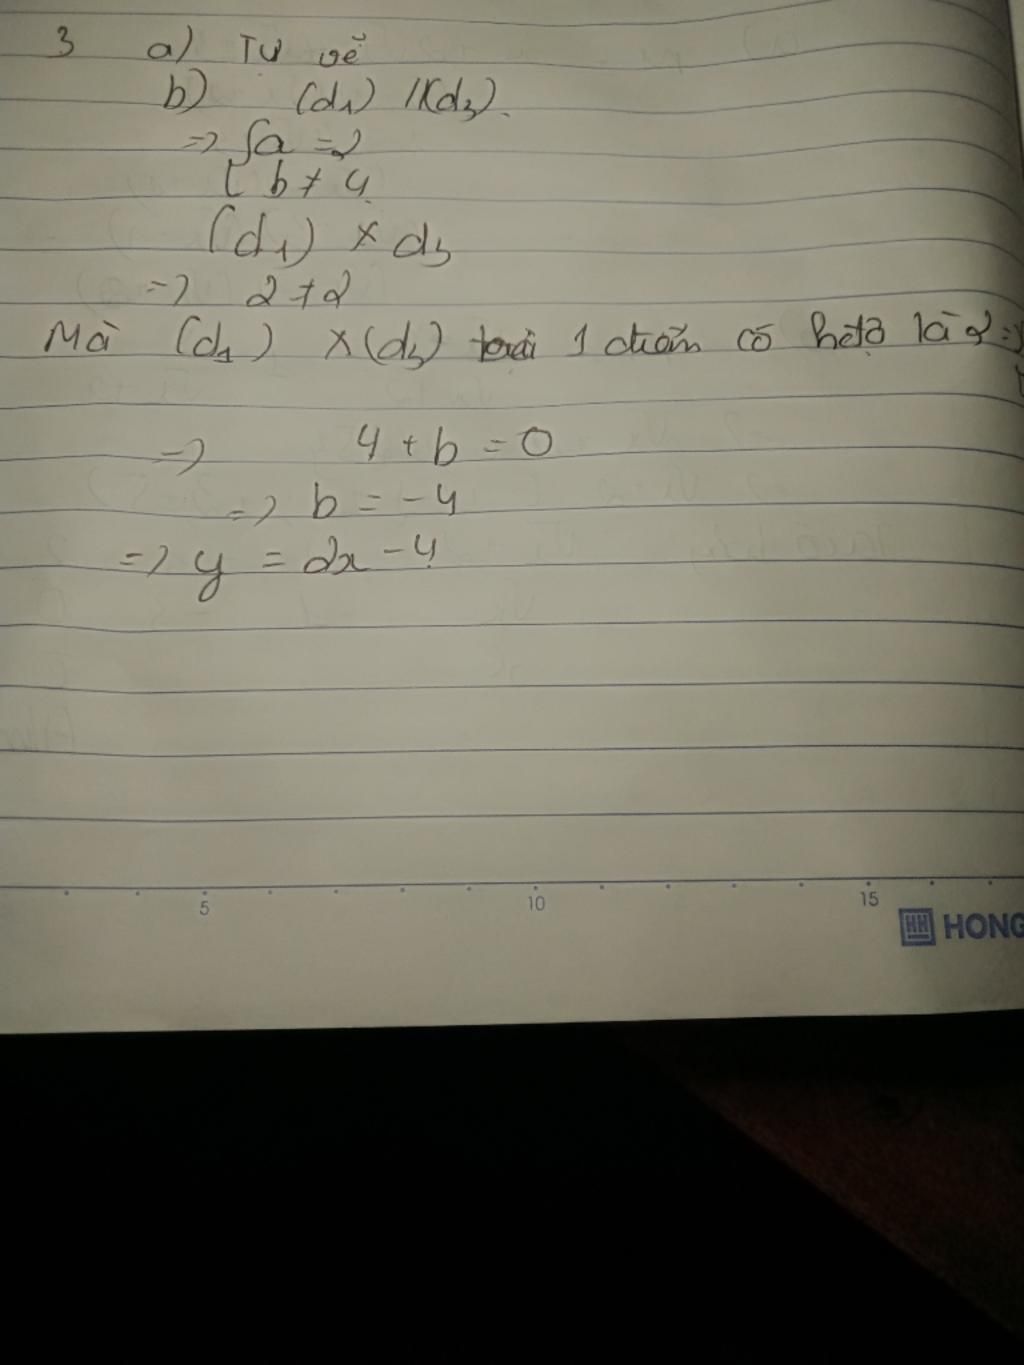 3 a) Tự vẽ
b) (d1) //(d3).
=> { a = 2
b ≠ 4
(d1) × d3
=> 2 ≠ 2
Mà (d1) × (d3) tại 1 điểm có hđộ là 2 =>
=> 4 + b = 0
=> b = -4
=> y = 2x - 4
5 10 15
HH HONG